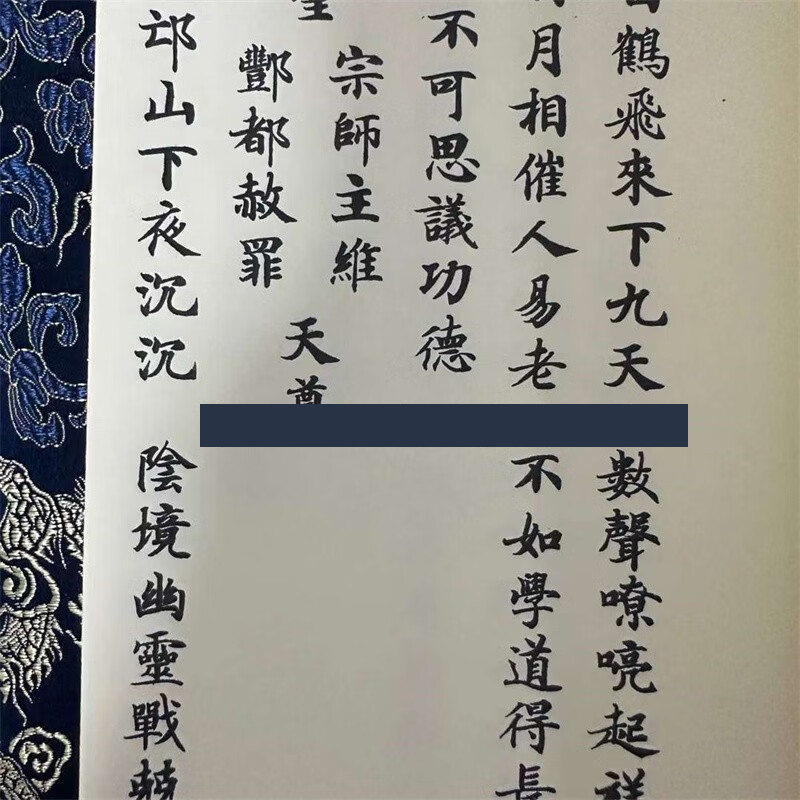 鶴飛來下九天 數聲嘹喨起
月相催人易老 不如學道得長
不可思議功德
宗師主維
酆都赦罪
天尊
邙山下夜沉沉 陰境幽靈戰